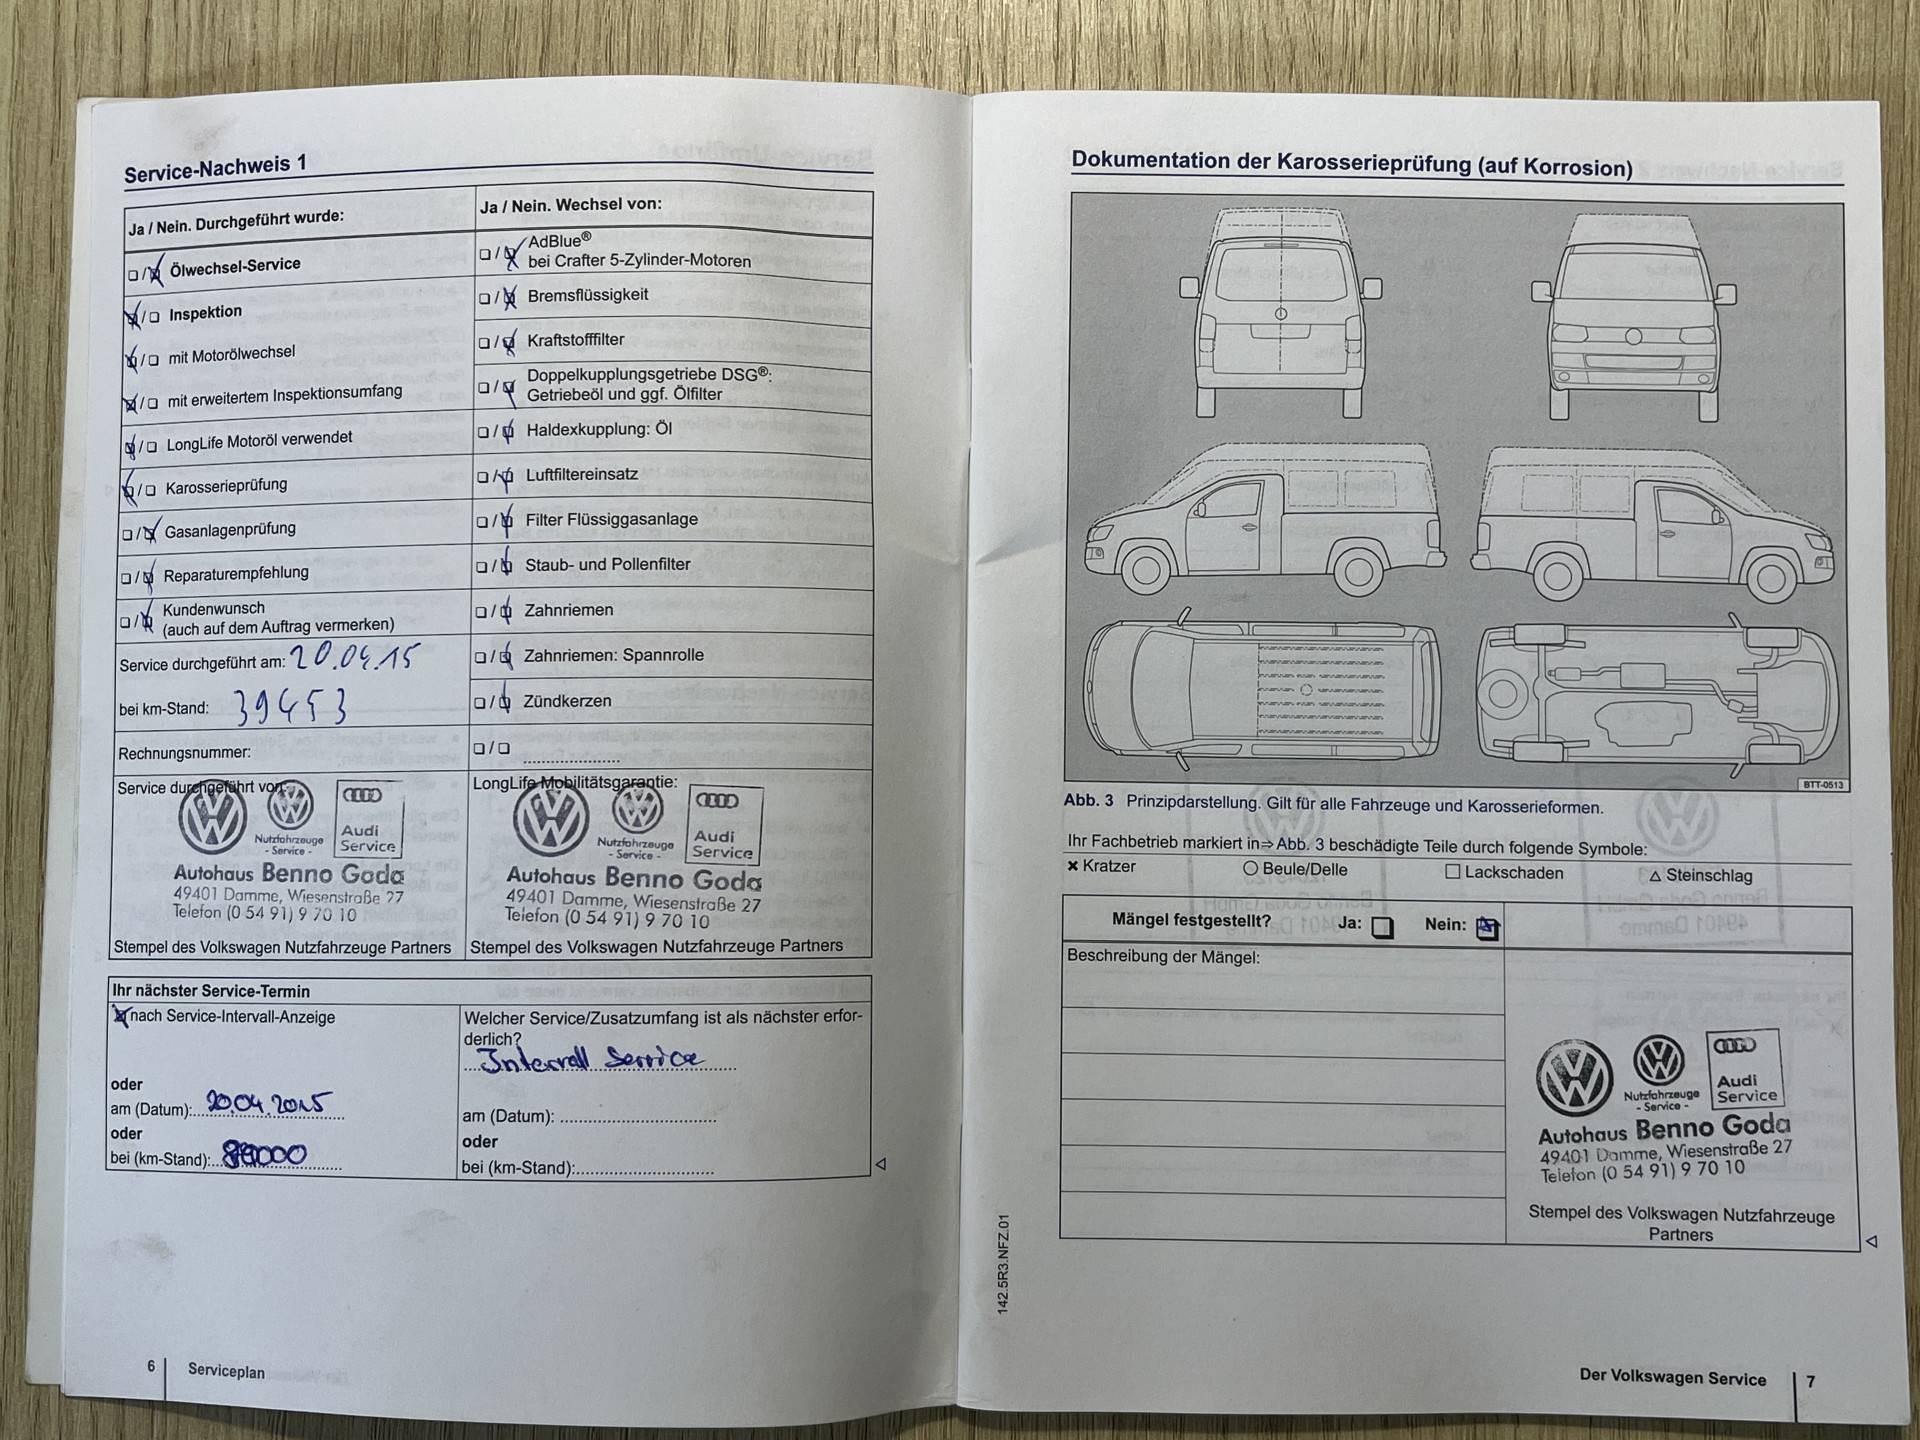 Service-Nachweis 1
Ja / Nein. Durchgeführt wurde:
❏ / ❏ Ölwechsel-Service
❏ / ❏ Inspektion
❏ / ❏ mit Motorölwechsel
❏ / ❏ mit erweitertem Inspektionsumfang
❏ / ❏ LongLife Motoröl verwendet
❏ / ❏ Karosserieprüfung
❏ / ❏ Gasanlagenprüfung
❏ / ❏ Reparaturempfehlung
❏ / ❏ Kundenwunsch
(auch auf dem Auftrag vermerken)
Service durchgeführt am: 20.04.15
bei km-Stand: 39453
Rechnungsnummer:
Ja / Nein. Wechsel von:
❏ / ❏ AdBlue®
bei Crafter 5-Zylinder-Motoren
❏ / ❏ Bremsflüssigkeit
❏ / ❏ Kraftstofffilter
❏ / ❏ Doppelkupplungsgetriebe DSG®:
Getriebeöl und ggf. Ölfilter
❏ / ❏ Haldexkupplung: Öl
❏ / ❏ Luftfiltereinsatz
❏ / ❏ Filter Flüssiggasanlage
❏ / ❏ Staub- und Pollenfilter
❏ / ❏ Zahnriemen
❏ / ❏ Zahnriemen: Spannrolle
❏ / ❏ Zündkerzen
❏ / ❏ ......................
Service durchgeführt von:
Nutzfahrzeuge
- Service -
Audi
Service
Autohaus Benno Goda
49401 Damme, Wiesenstraße 27
Telefon (0 54 91) 9 70 10
Stempel des Volkswagen Nutzfahrzeuge Partners
LongLife Mobilitätsgarantie:
Nutzfahrzeuge
- Service -
Audi
Service
Autohaus Benno Goda
49401 Damme, Wiesenstraße 27
Telefon (0 54 91) 9 70 10
Stempel des Volkswagen Nutzfahrzeuge Partners
Ihr nächster Service-Termin
nach Service-Intervall-Anzeige
oder
am (Datum): 20.04.2015
oder
bei (km-Stand):
Welcher Service/Zusatzumfang ist als nächster erfor-
derlich?
Intervall Service
am (Datum):
oder
bei (km-Stand):
6 Serviceplan
Dokumentation der Karosserieprüfung (auf Korrosion)
BTT-0513
Abb. 3 Prinzipdarstellung. Gilt für alle Fahrzeuge und Karosserieformen.
Ihr Fachbetrieb markiert in⇒Abb. 3 beschädigte Teile durch folgende Symbole:
✖ Kratzer ○ Beule/Delle □ Lackschaden △ Steinschlag
Mängel festgestellt? Ja: ❏ Nein: ❏
Beschreibung der Mängel:
Nutzfahrzeuge
- Service -
Audi
Service
Autohaus Benno Goda
49401 Damme, Wiesenstraße 27
Telefon (0 54 91) 9 70 10
Stempel des Volkswagen Nutzfahrzeuge
Partners
142.5R3.NFZ.01
Der Volkswagen Service 7